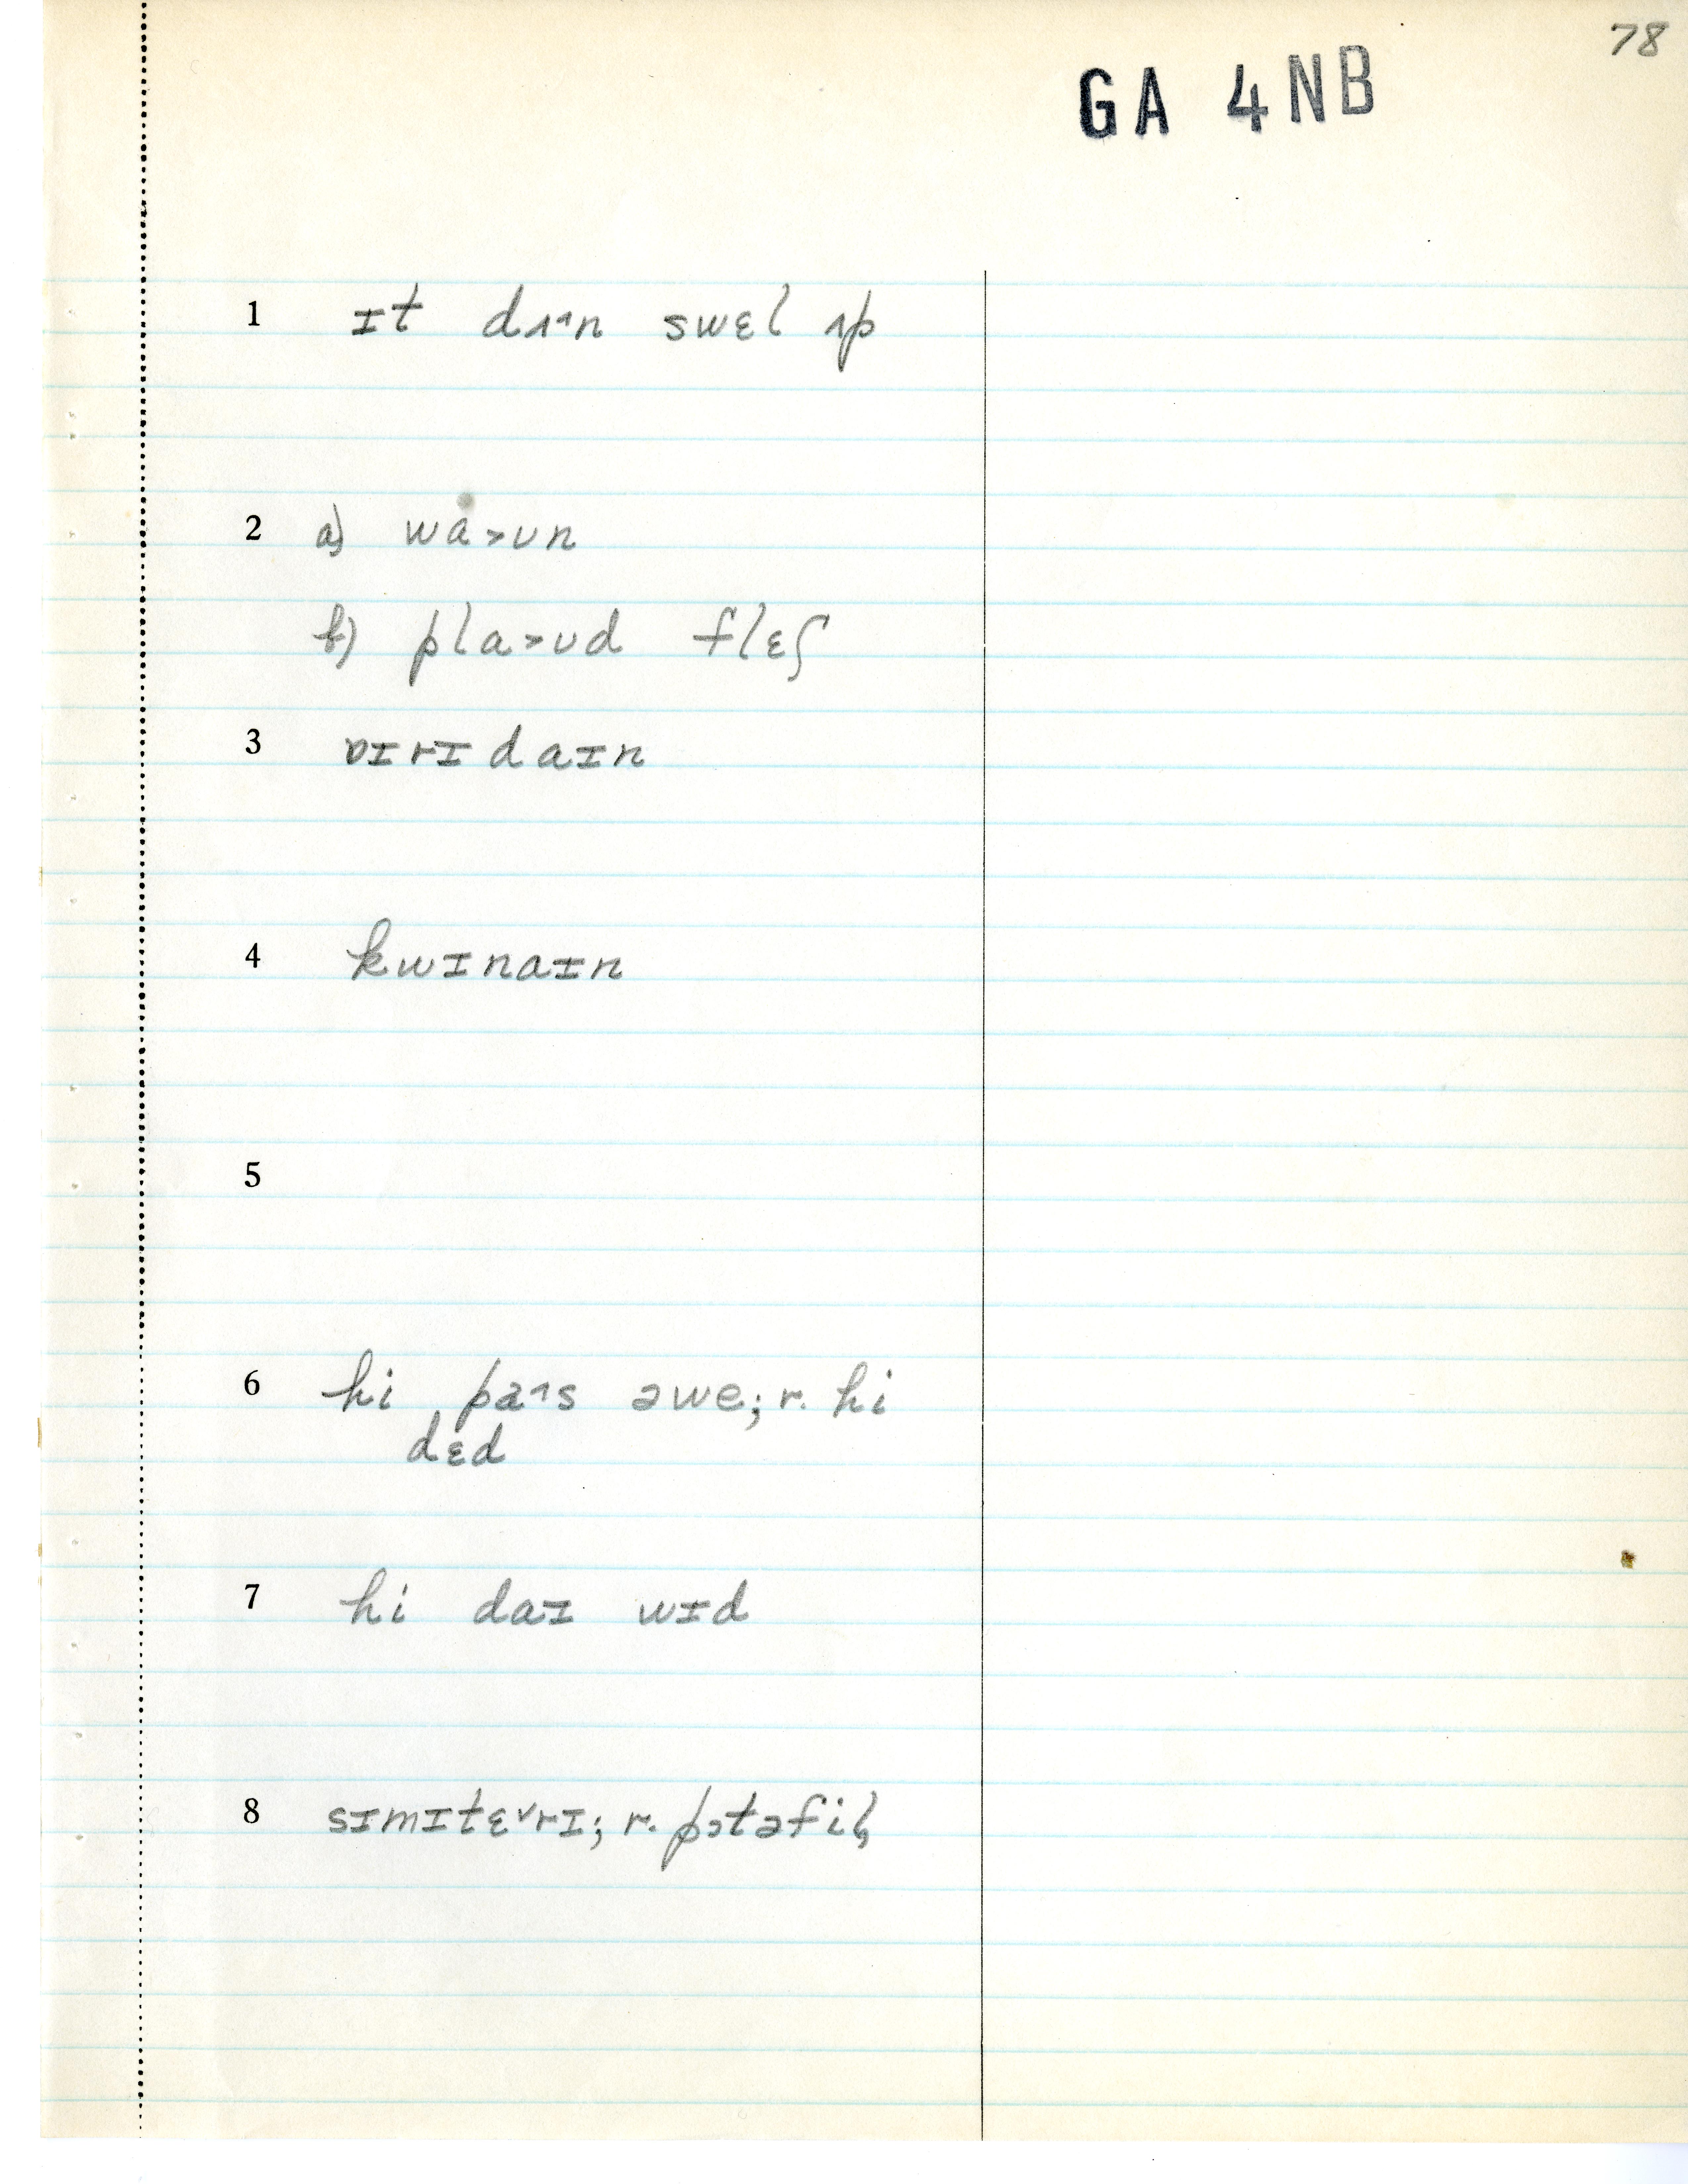 78
GA 4NB
1 ɪt dʌ˄n swɛl ʌp
2 a) wå˃ʊn
b) pla˃ʊd flɛʃ
3 ɒɪrɪdaɪn
4 kwɪnaɪn
5
6 hi pa˄s əwe; r. hi
dɛd
7 hi daɪ wɪd
8 sɪmɪtɛ˅rɪ; r. pɔtəfil̡